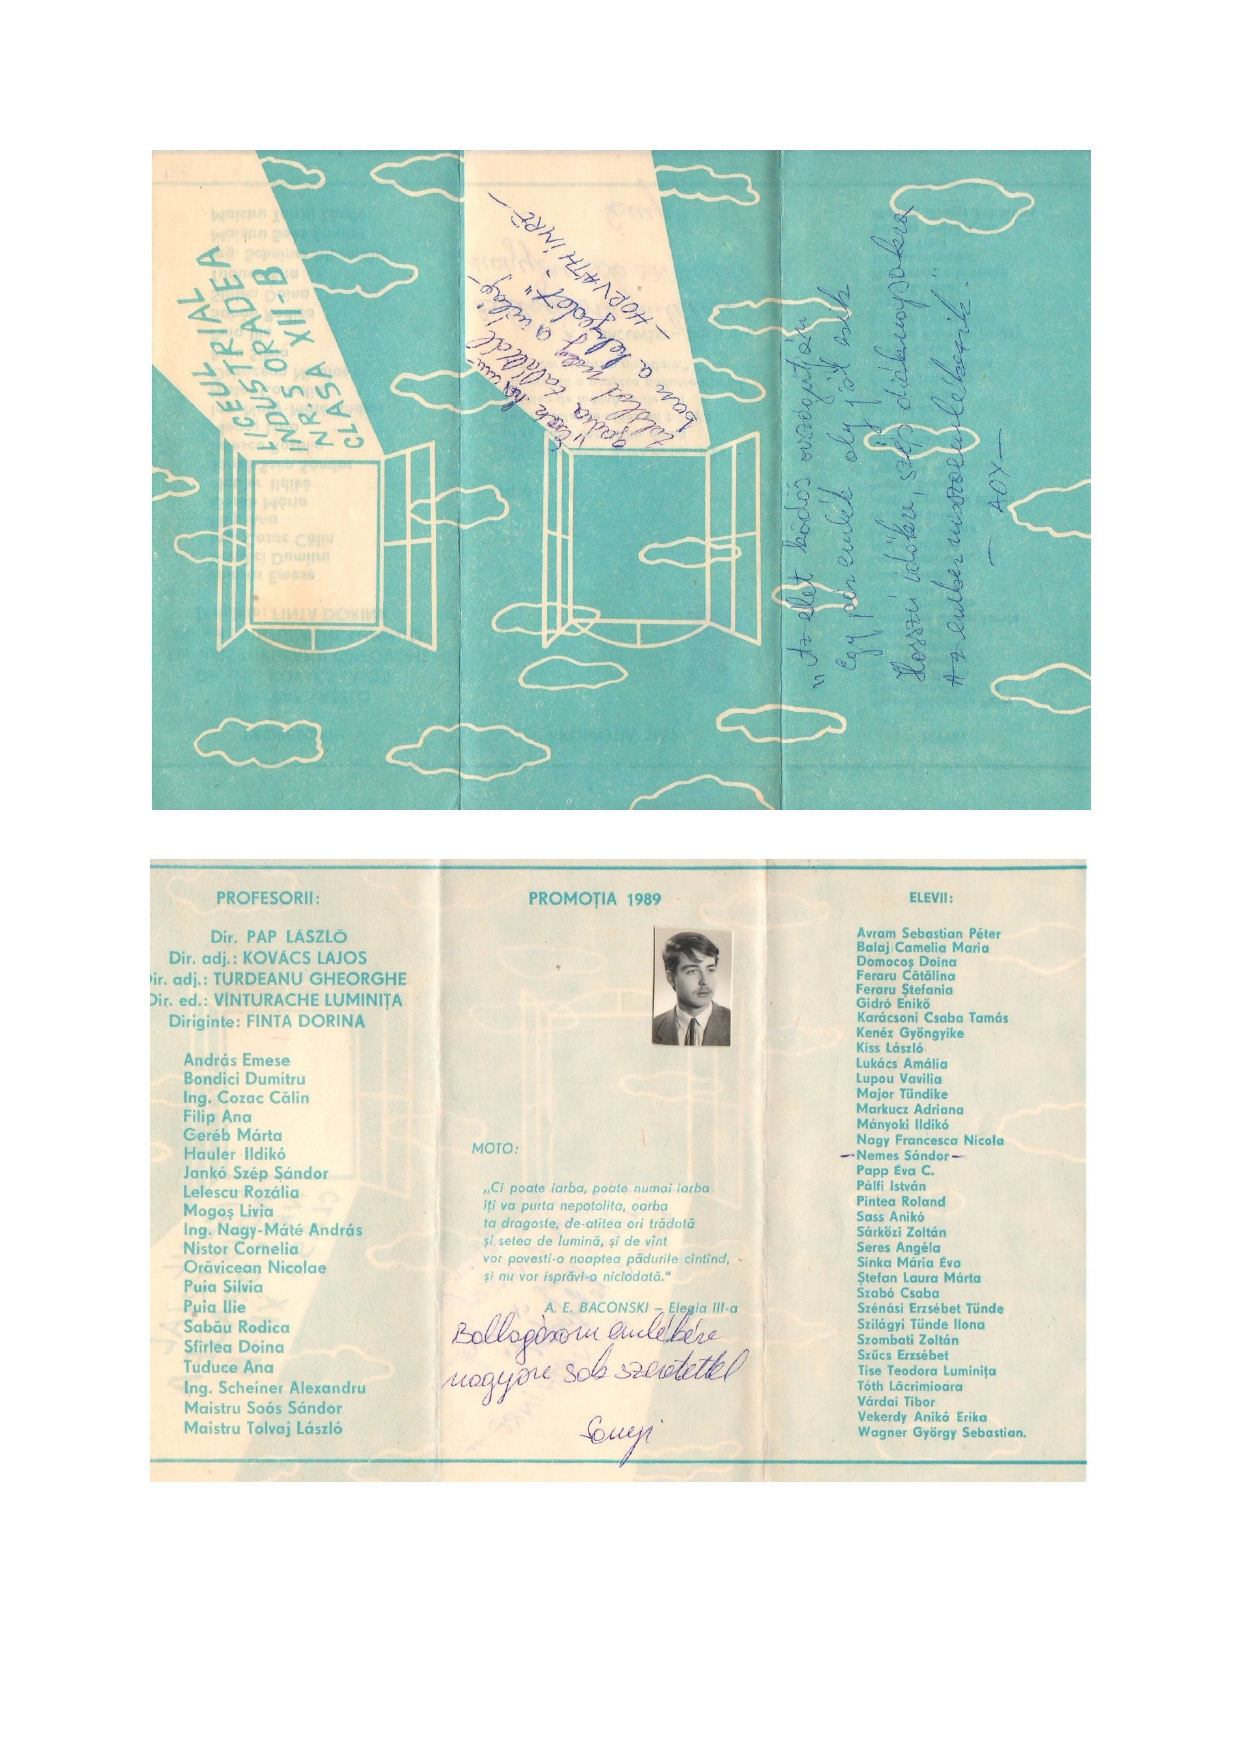 LICEUL
INDUSTRIAL
NR.5 ORADEA
CLASA XII-B
"Csak ha
találtál
ban a helyedet".
— HORVÁTH IMRE —
"Az élet ködös országútján
Egy pár emlék oly jól esik
Hosszú időkre, szép diáknapokra
Az ember visszaemlékezik."
— ADY —
PROFESORII:
Dir. PAP LÁSZLÓ
Dir. adj.: KOVÁCS LAJOS
ir. adj.: TURDEANU GHEORGHE
Dir. ed.: VÎNTURACHE LUMINIȚA
Diriginte: FINTA DORINA
András Emese
Bondici Dumitru
Ing. Cozac Călin
Filip Ana
Geréb Márta
Hauler Ildikó
Jankó Szép Sándor
Lelescu Rozália
Mogoș Livia
Ing. Nagy-Máté András
Nistor Cornelia
Orăvicean Nicolae
Puia Silvia
Puia Ilie
Sabău Rodica
Sfîrlea Doina
Tuduce Ana
Ing. Scheiner Alexandru
Maistru Soós Sándor
Maistru Tolvaj László
PROMOȚIA 1989
MOTO:
„Ci poate iarba, poate numai iarba
îți va purta nepotolita, oarba
ta dragoste, de-atîtea ori trădată
și setea de lumină, și de vînt
vor povesti-o noaptea pădurile cîntînd,
și nu vor isprăvi-o niciodată."
A. E. BACONSKI – Elegia III-a
Ballagásom emlékére
nagyon sok szeretettel
Sanyi
ELEVII:
Avram Sebastian Péter
Balaj Camelia Maria
Domocoș Doina
Feraru Cătălina
Feraru Ștefania
Gidró Enikő
Karácsoni Csaba Tamás
Kenéz Gyöngyike
Kiss László
Lukács Amália
Lupou Vavilia
Major Tündike
Markucz Adriana
Mányoki Ildikó
Nagy Francesca Nicola
—Nemes Sándor—
Papp Éva C.
Pálfi István
Pintea Roland
Sass Anikó
Sárközi Zoltán
Seres Angéla
Sinka Mária Éva
Ștefan Laura Márta
Szabó Csaba
Szénási Erzsébet Tünde
Szilágyi Tünde Ilona
Szombati Zoltán
Szűcs Erzsébet
Tise Teodora Luminița
Tóth Lăcrimioara
Várdai Tibor
Vekerdy Anikó Erika
Wagner György Sebastian.